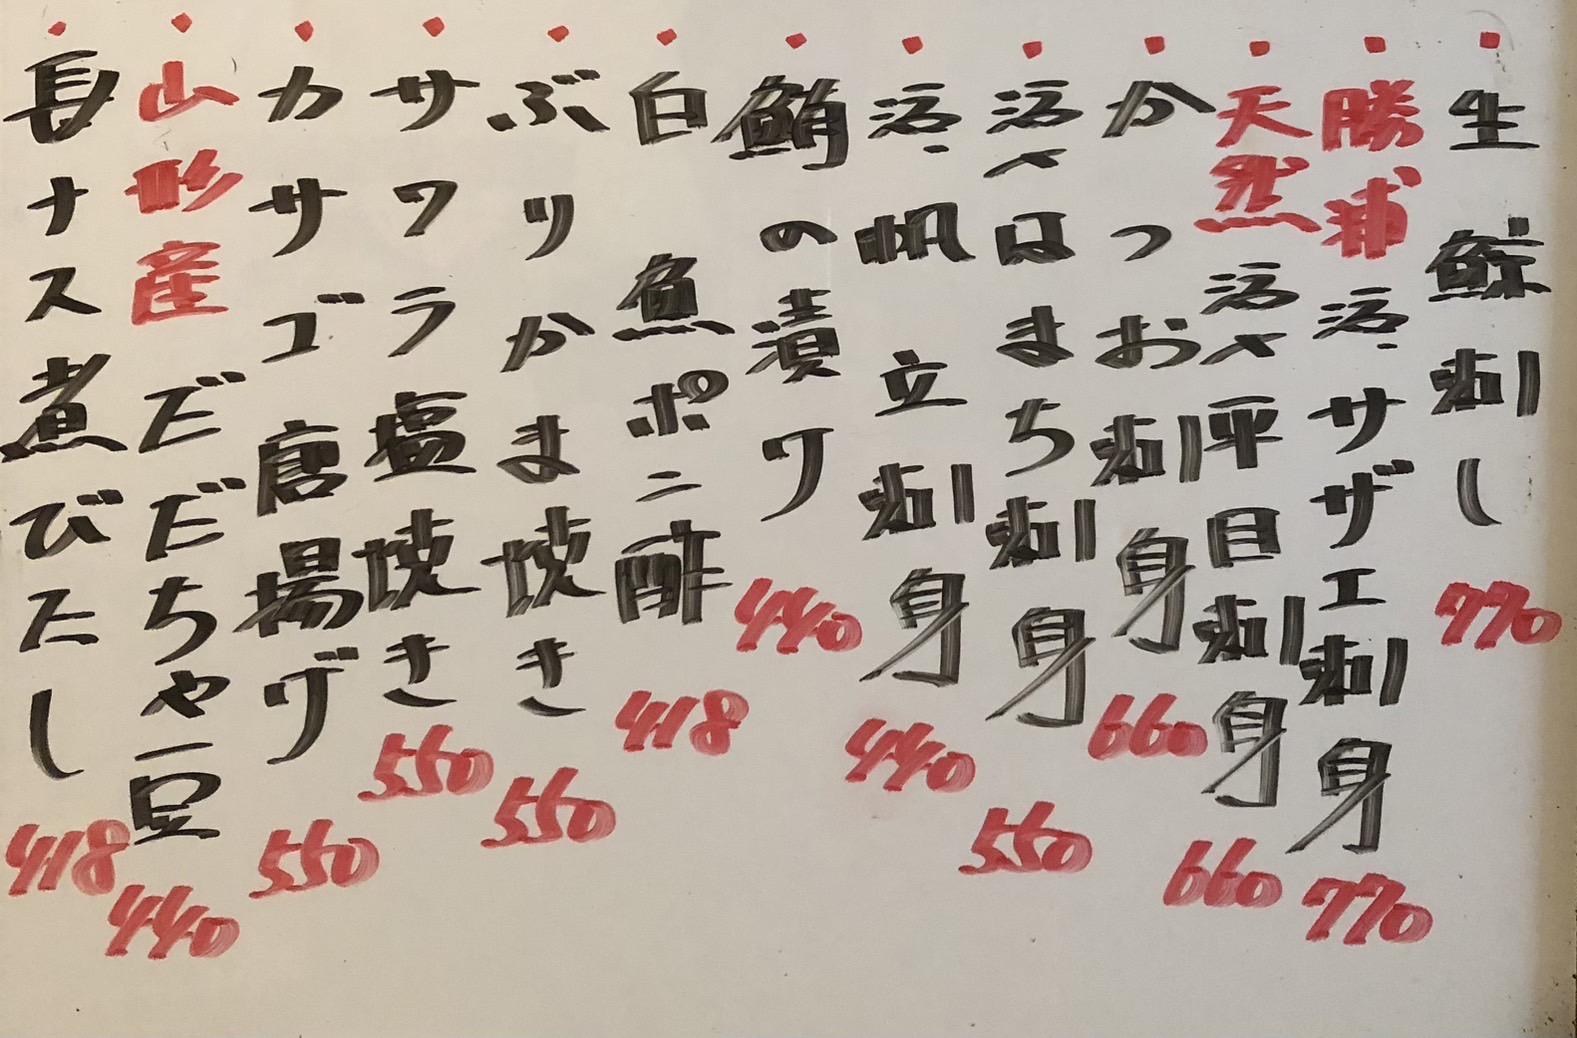 生鯨刺し 770
勝浦活〆サザエ刺身 770
天然活〆平目刺身 660
かつお刺身 660
活〆はまち刺身 550
活〆帆立刺身 440
鮪の漬ワ 440
白魚ポニ酢 418
ぶりかま焼き 550
サワラ塩焼き 550
カサゴ唐揚げ 550
山形産だだちゃ豆 440
長ナス煮びたし 418